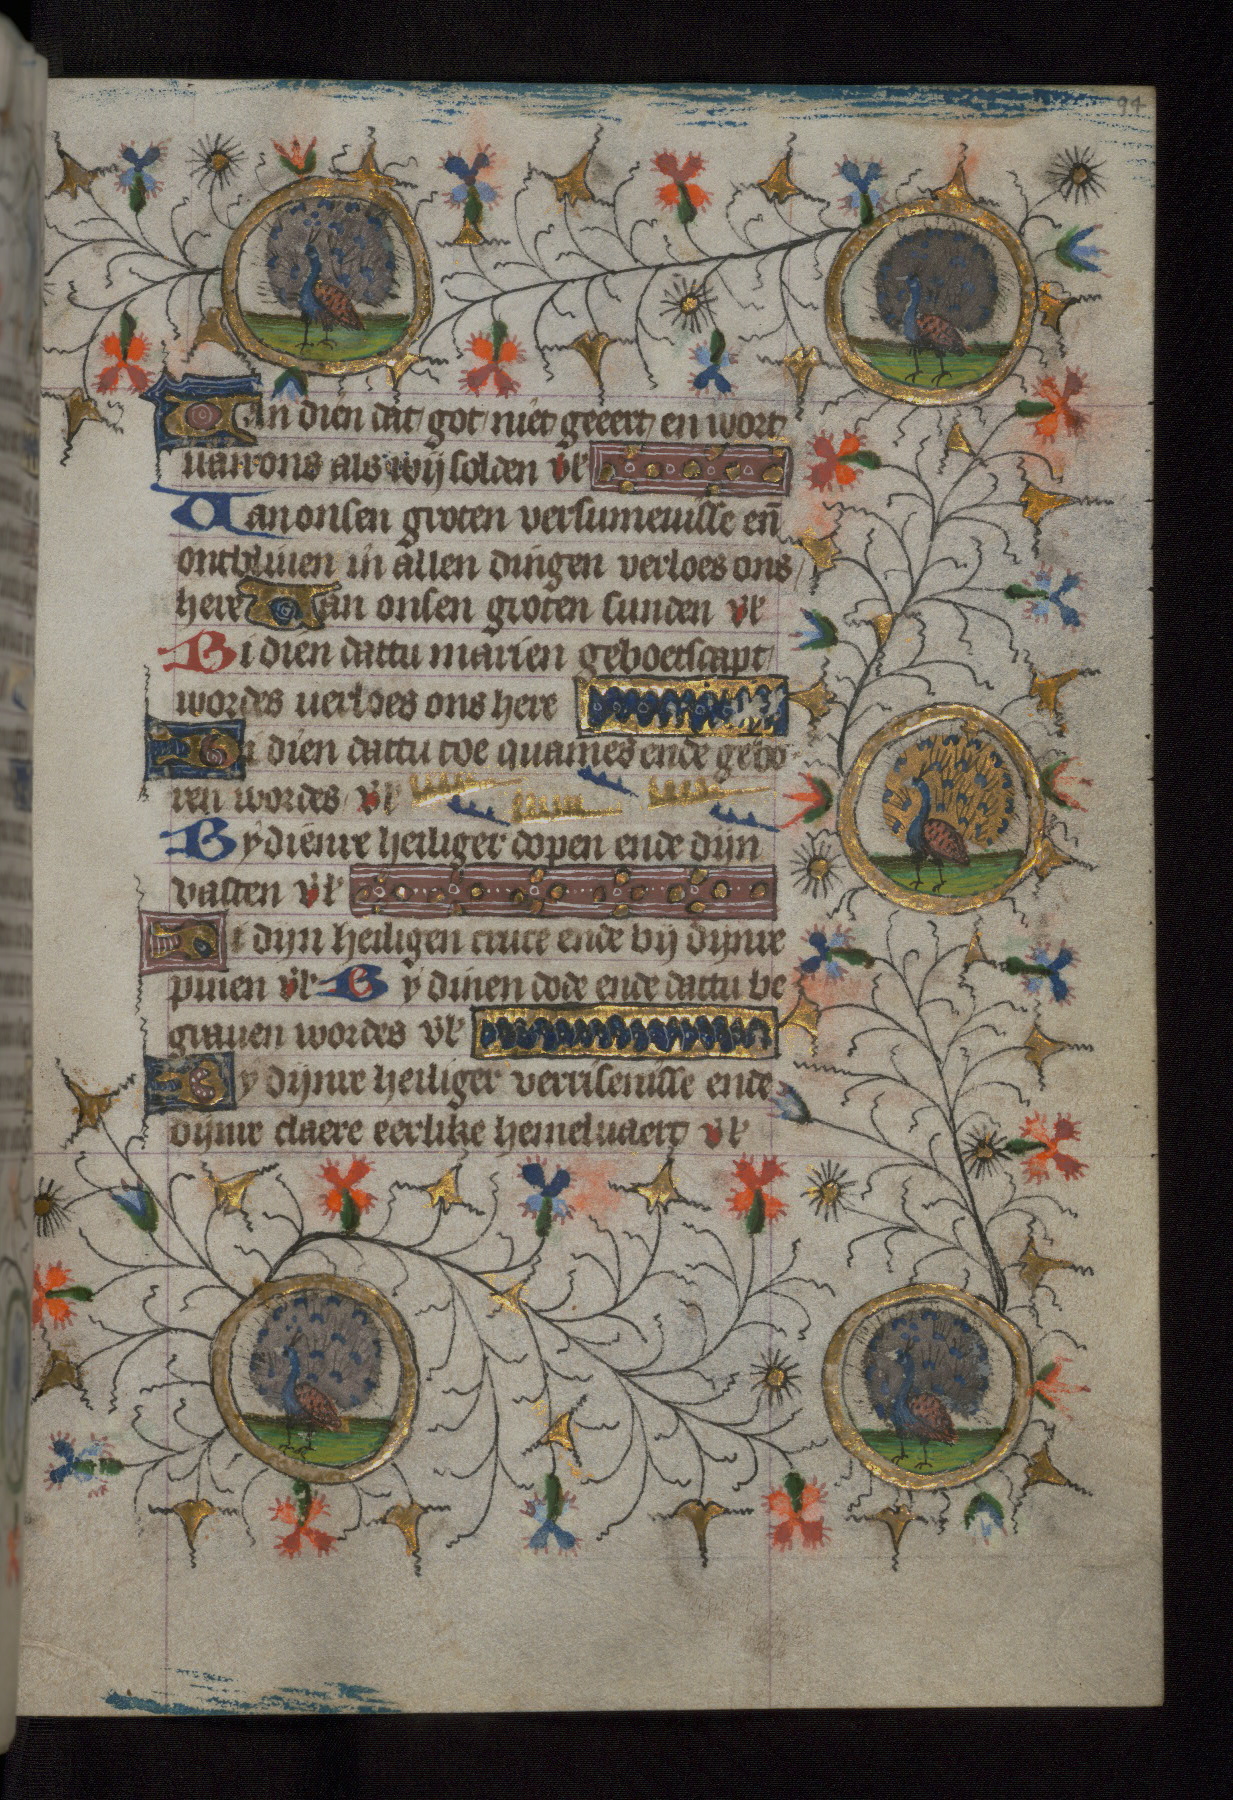 94
Van dien dat got niet geeert en wort
uan ons als wij solden vl
Van onsen groten versumenisse en̄
ontbliuen in allen dingen verloes ons
here Van onsen groten sunden vl
Bi dien dattu marien geboetscapt
wordes uerloes ons here
Bi dien dattu toe quames ende gebo
ren wordes vl
By dienre heiliger dopen ende dijn
vasten vl
Bi dijn heiligen cruce ende bij dijnre
puien vl By dinen dode ende dattu be
grauen wordes vl
By dijnre heiliger verrisenisse ende
dijnre claere eerlike hemeluaert vl